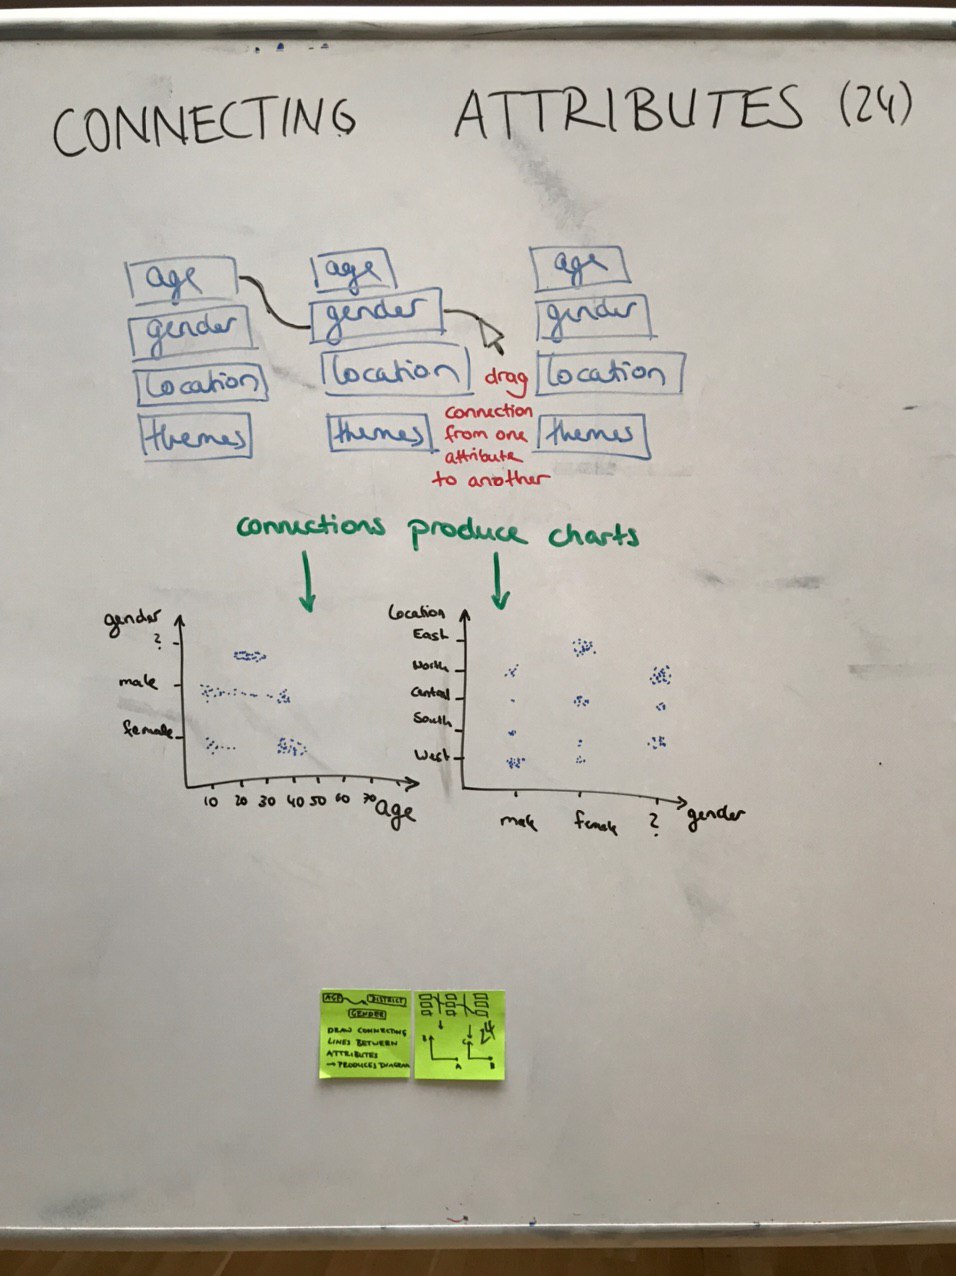 CONNECTING ATTRIBUTES (24)
age
gender
Location
themes
age
gender
Location
themes
age
gender
Location
themes
drag
connection
from one
attribute
to another
connections produce charts
gender
?
male
female
10 20 30 40 50 60 70
Age
Location
East
North
Central
South
West
male female ?
gender
AGE DISTRICT
GENDER
DRAW CONNECTING
LINES BETWEEN
ATTRIBUTES
→ PRODUCES DIAGRAM
24
B
A
C
B